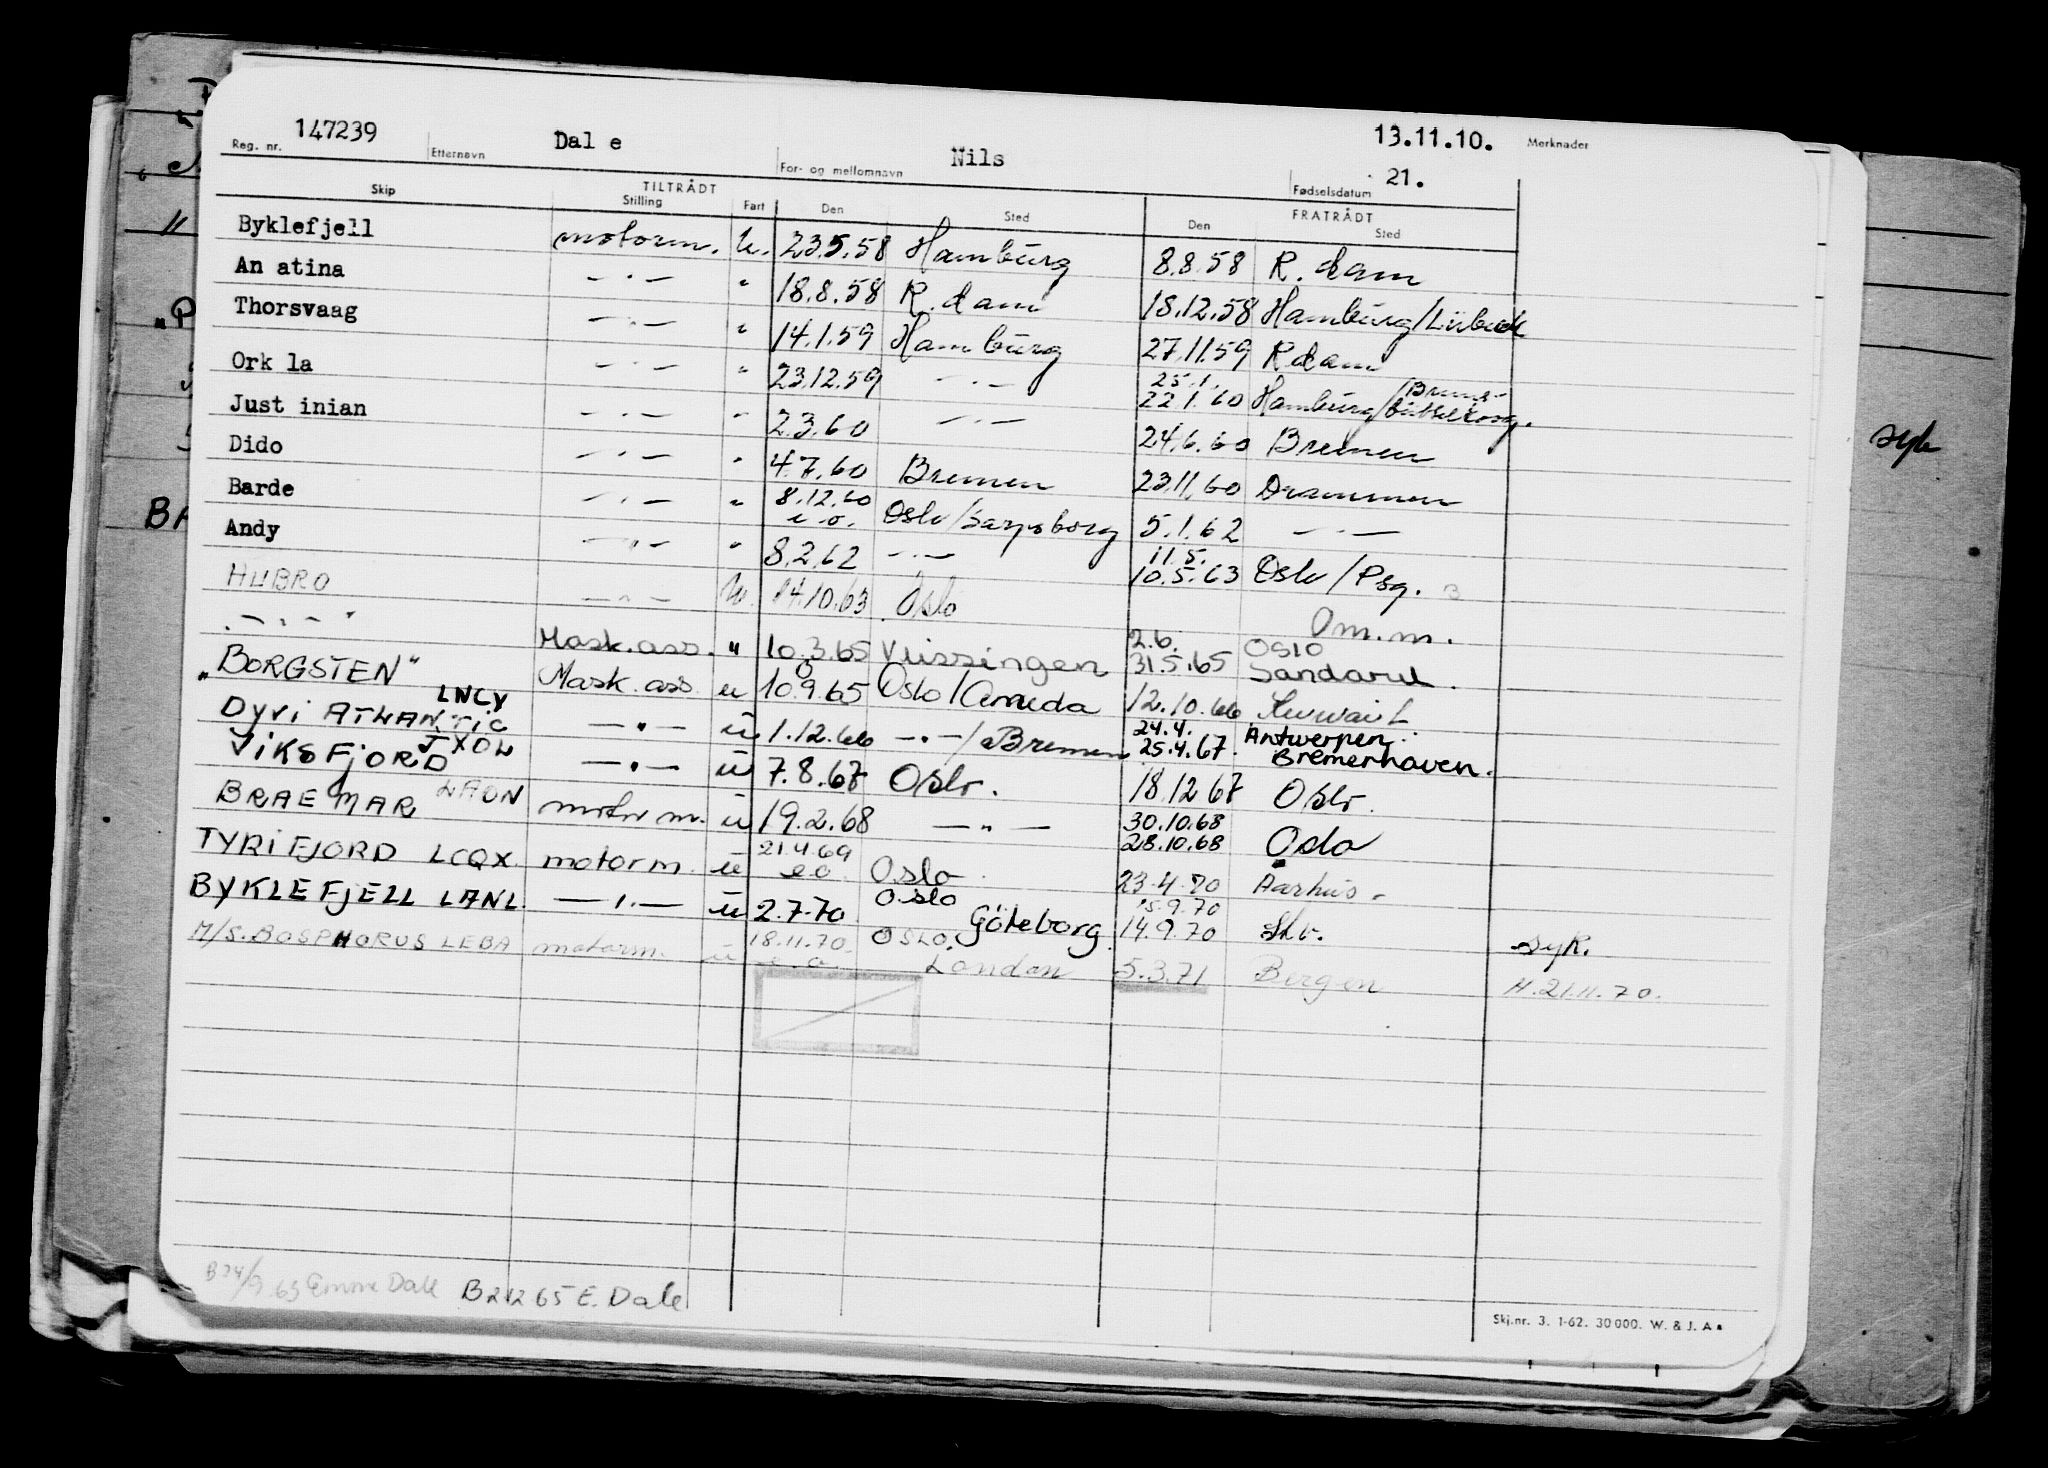 147239 Dal e Nils 13.11.10. Merknader
Reg. nr. Etternavn For- og mellomnavn Fødselsdatum 21.
TILTRÅDT FRATRÅDT
Skip Stilling Fart Den Sted Den Sted
Byklefjell motorm. u. 23.5.58 Hamburg 8.8.58 R.dam
An atina —"— " 18.8.58 R.dam 18.12.58 Hamburg/Lübeck
Thorsvaag —"— " 14.1.59 Hamburg 27.11.59 Rdam
25.1.
Ork la —"— " 23.12.59 —"— 22.1.60 Hamburg/
Just inian —"— " 2.3.60 —"— 24.6.60 Bremen
Dido —"— " 4.7.60 Bremen 23.11.60 Drammen
Barde —"— " 8.12.60 e.o. Oslo/Sarpsborg 5.1.62 —"—
11.5.
Andy —"— " 8.2.62 —"— 10.5.63 Oslo/Psg.
HUBRO —"— u. 14.10.63 Oslo Om.m.
2.6. OSLO
—"— Mask.ass. " 10.3.65 Vlissingen 31.5.65 Sandarul.
"BORGSTEN" LNCY Mask.ass u 10.9.65 Oslo/Ameda 12.10.66 Kuwait
24.4. Antwerpen.
Dyvi ATLANTIC JXOW —"— u 1.12.66 —"—/Bremen 25.4.67. Bremerhaven.
VIKSFJORD —"— u 7.8.67 Oslo. 18.12 67 Oslo.
30.10.68
BRAEMAR LAON motor m. u 19.2.68 —"— 28.10.68 Oslo
21.4.69
TYRIFJORD LCQX motorm. u e.o. Oslo 23.4.70 Aarhus
Oslo 15.9.70
BYKLEFJELL LANL. —"— u 2.7.70 Göteborg. 14.9.70 Shv. syk.
18.11.70. OSLO.
M/S. BOSPHORUS LEBA motorm. u e.o. London 5.3.71 Bergen H.21.11.70.
B 24/9.63 Emma Dale B2 12 65 E. Dale
Skj.nr. 3. 1-62. 30 000. W. & J. A s
syk